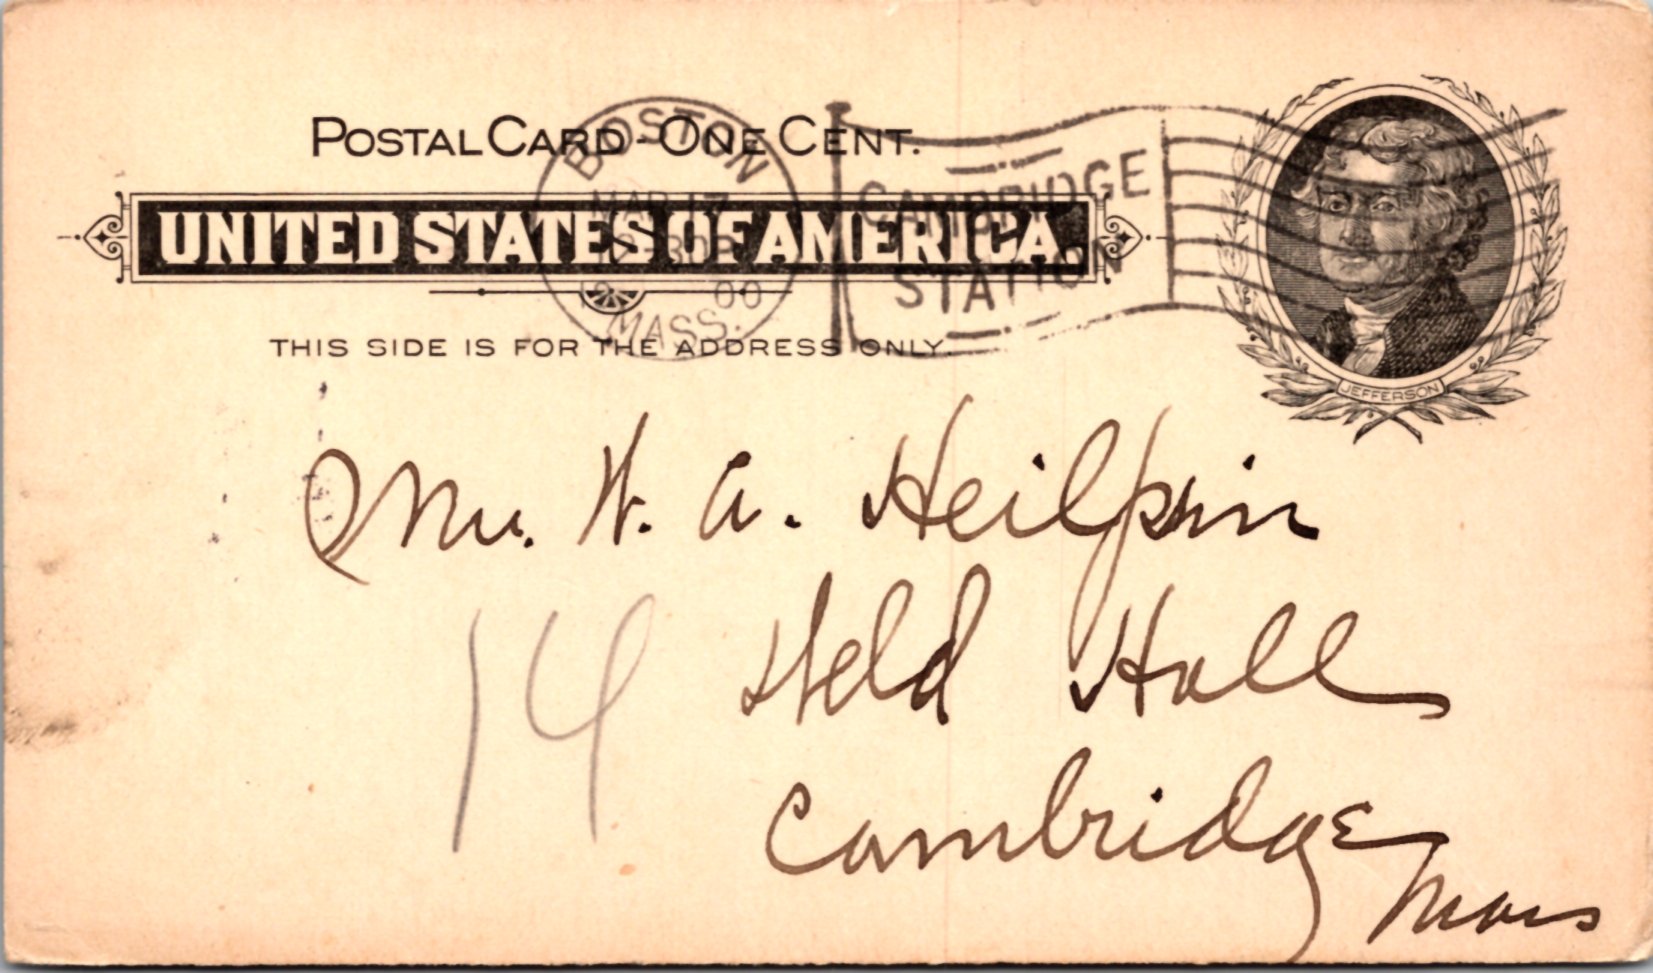 POSTAL CARD - ONE CENT.
UNITED STATES OF AMERICA.
THIS SIDE IS FOR THE ADDRESS ONLY.
BOSTON
MAR 17
00
MASS.
CAMBRIDGE
STATION
JEFFERSON
Mr. W. A. Heilprin
14
Held Hall
Cambridge
Mass